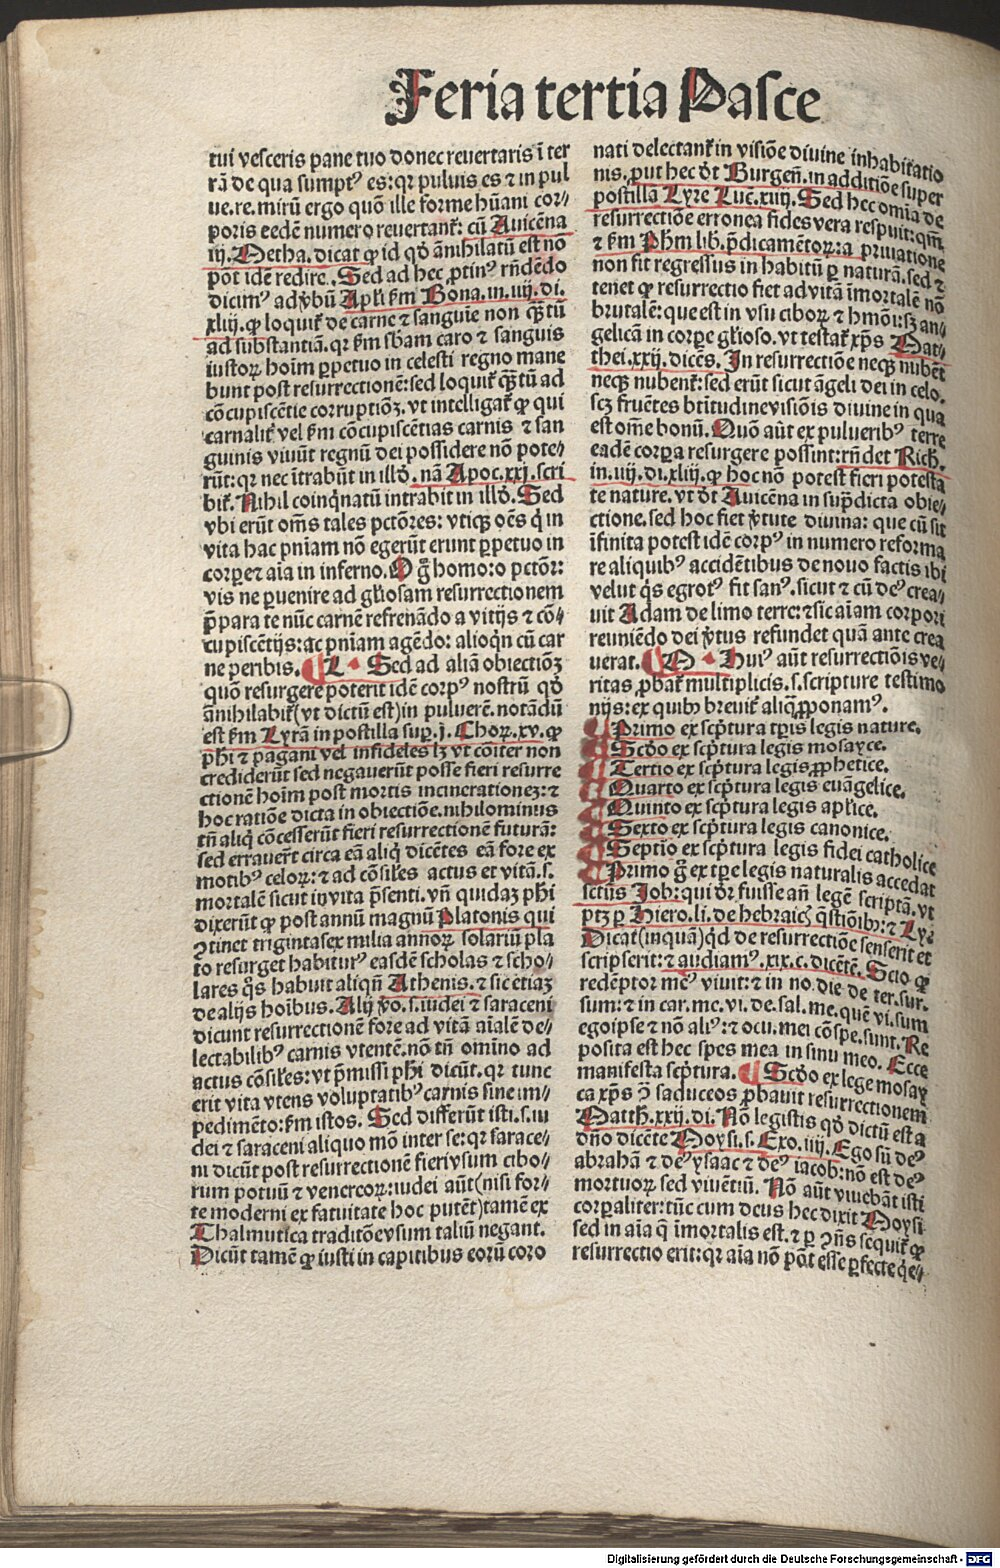 Feria tertia Pasce
tui vesceris pane tuo donec reuertaris ī ter
rā de qua sumptꝰ es: qꝛ puluis es ⁊ in pul
ue. re. mirū ergo quō ille forme hūani cor⸗
poris eedē numero reuertant᷑: cū Auicēna
iij. Metha. dicat ꝙ id qd̕ ānihilatū est nō
pōt idē redire. Sed ad hec ꝓtinꝰ rn̄dēdo
dicimꝰ ad v̕bū Apl̕i fm̄ Bona. in. iiij. di.
xliij. ꝙ loquit᷑ de carne ⁊ sanguie non qꝫtū
ad substantiā. qꝛ fm̄ sb̄am caro ⁊ sanguis
iustoꝝ hoīm ꝑpetuo in celesti regno mane
bunt post resurrectionē: sed loquit᷑ qꝫtū ad
cōcupiscētie corruptiōꝫ. vt intelligat᷑ ꝙ qui
carnalit᷑ vel fm̄ cōcupiscētias carnis ⁊ san
guinis viuūt regnū dei possidere nō pote⸗
rūt: qꝛ nec ītrabūt in illd̕. nā Apoc. xxi. scri
bit᷑. Nihil coinq̇natū intrabit in illd̕. Sed
vbi erūt om̄s tales pctōres: vtiqꝫ oēs q̇ in
vita hac pn̄iam nō egerūt erunt ꝑpetuo in
corꝑe ⁊ aīa in inferno. O g̊ homo: o pctōr:
vis ne ꝑuenire ad gl̕iosam resurrectionem
p̄para te nūc carnē refrenādo a vitijs ⁊ cō⸗
cupiscētijs: ac pn̄iam agēdo: alioq̇n cū car
ne peribis. ¶ L. Sed ad aliā obiectiōꝫ
quō resurgere poterit idē corpꝰ nostrū qd̕
ānihilabit᷑ (vt dictū est) in puluerē. notādū
est fm̄ Lyrā in postilla suꝑ. j. Choꝝ. xv. ꝙ
ph̕i ⁊ pagani vel infideles lꝫ vt cōiter non
crediderūt sed negauerūt posse fieri resurre
ctionē hoīm post mortis incinerationeꝫ: ⁊
hoc ratiōe dicta in obiectiōe. nihilominus
tn̄ aliq̇ cōcesserūt fieri resurrectionē futurā:
sed errauer̄t circa eā aliq̇ dicētes eā fore ex
motibꝰ celoꝝ: ⁊ ad cōsil̕es actus et vitā. s.
mortalē sicut in vita p̄senti. vn̄ quidaꝫ ph̕i
dixerūt ꝙ post annū magnū Platonis qui
ꝯtinet trigintasex milia annoꝝ solariū pla
to resurget habiturꝰ easdē scholas ⁊ scho⸗
lares q̊s habuit aliqn̄ Athenis. ⁊ sic etiaꝫ
de alijs hoībus. Alij v̊o. s. iudei ⁊ saraceni
dicunt resurrectionē fore ad vitā aīalē de⸗
lectabilibꝰ carnis vtentē. nō tn̄ omīno ad
actus cōsil̕es: vt p̄missi ph̕i dicūt. qꝛ tunc
erit vita vtens voluptatibꝰ carnis sine im⸗
pedimēto: fm̄ istos. Sed differūt isti. s. iu
dei ⁊ saraceni aliquo mō inter se: qꝛ sarace⸗
ni dicūt post resurrectionē fieri vsum cibo⸗
rum potuū ⁊ venereoꝝ: iudei aūt (nisi for⸗
te moderni ex fatuitate hoc putēt) tamē ex
Thalmutica traditōe vsum taliū negant.
Dicūt tamē ꝙ iusti in capitibus eorū coro
nati delectant᷑ in visiōe diuine inhabitatio
nis. ꝓut hec dt̄ Burgeñ. in additiōe super
postilla Lyre Luc̄. xiiij. Sed hec om̄ia de
resurrectiōe erronea fides vera respuit: qm̄
⁊ fm̄ Ph̕m lib. p̄dicamētoꝝ: a priuatione
non fit regressus in habitū ꝑ naturā. sed ⁊
tenet ꝙ resurrectio fiet ad vitā īmortalē nō
brutalē: que est in vsu ciboꝝ ⁊ hm̄oi: sꝫ an⸗
gelicā in corꝑe gl̕ioso. vt testat᷑ xp̄s Mat⸗
thei. xxij. dicēs. In resurrectiōe neqꝫ nubēt
neqꝫ nubent᷑: sed erūt sicut āgeli dei in celo.
scꝫ fruētes btitudine visiōis diuine in qua
est om̄e bonū. Quō aūt ex pulueribꝰ terre
eadē corꝑa resurgere possint: rn̄det Rich.
in. iiij. di. xliij. ꝙ hoc nō potest fieri potesta
te nature. vt dt̄ Auicēna in sup̄dicta obie⸗
ctione. sed hoc fiet v̕tute diuina: que cū sit
īfinita potest idē corpꝰ in numero reforma
re aliquibꝰ accidētibus de nouo factis ibi
velut q̇s egrotꝰ fit sanꝰ. sicut ⁊ cū deꝰ crea⸗
uit Adam de limo terre: ⁊ sic aīam corpori
reuniēdo dei v̕tus refundet quā ante crea
uerat. ¶ M. Huiꝰ aūt resurrectiōis ve⸗
ritas ꝓbat᷑ multiplicis. s. scripture testimo
nijs: ex quibꝫ breuit᷑ aliq̄ ꝓponamꝰ.
¶ Primo ex scp̄tura tp̄is legis nature.
¶ Scd̕o ex scp̄tura legis mosayce.
¶ Tertio ex scp̄tura legis ꝓphetice.
¶ Quarto ex scp̄tura legis euāgelice.
¶ Quinto ex scp̄tura legis apl̕ice.
¶ Sexto ex scp̄tura legis canonice.
¶ Septīo ex scp̄tura legis fidei catholice
¶ Primo g̊ ex tp̄e legis naturalis accedat
sctūs Job: qui dr̄ fuisse añ legē scriptā. vt
ptꝫ ꝑ Hiero. li. de hebraicꝭ q̄stiōibꝫ: ⁊ Lyr̄
Dicat (inquā) qd̕ de resurrectiōe senserit et
scripserit: ⁊ audiamꝰ. xix. c. dicētē. Scio ꝙ
redēptor meꝰ viuit: ⁊ in no. die de ter. sur.
sum: ⁊ in car. me. vi. de. sal. me. quē vi. sum
ego ipse ⁊ nō aliꝰ: ⁊ ocu. mei cōspe. sunt. Re
posita est hec spes mea in sinu meo. Ecce
manifesta scp̄tura. ¶ Scd̕o ex lege mosay
ca xp̄s ꝯ̄ saduceos ꝓbauit resurrectionem
Matth. xxij. di. Nō legistis qd̕ dictū est a
dn̄o dicēte Moysi. s. Exo. iiij. Ego sū deꝰ
abrahā ⁊ deꝰ ysaac ⁊ deꝰ iacob: nō est deꝰ
mortuoꝝ sed viuētiū. Nō aūt viuebāt isti
corꝑaliter: tūc cum deus hec dixit Moysi
sed in aīa q̄ īmortalis est. ⁊ ꝑ ꝯn̄s sequit᷑ ꝙ
resurrectio erit: qꝛ aīa nō pōt esse ꝑfecte q̇e⸗
Digitalisierung gefördert durch die Deutsche Forschungsgemeinschaft - DFG